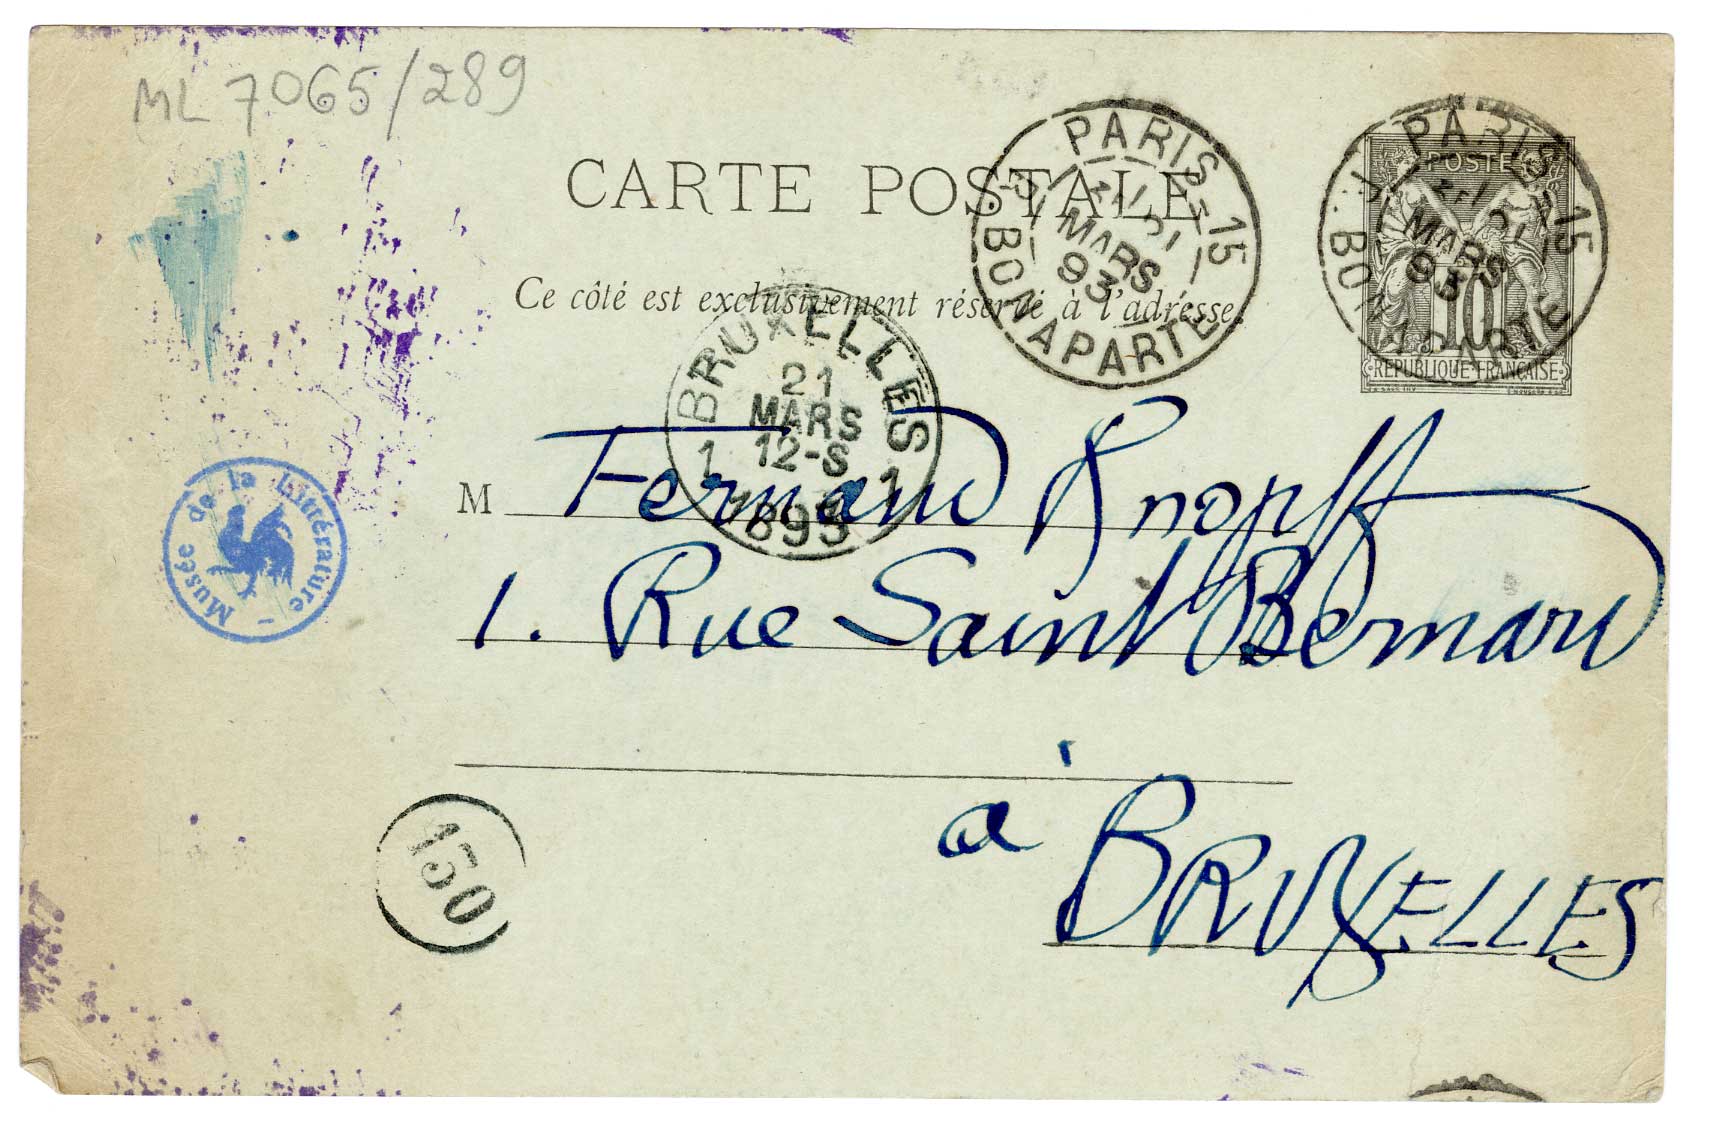 ML 7065/289
CARTE POSTALE
Ce côté est exclusivement réservé à l'adresse.
PARIS-15
MARS
93
R. BONAPARTE
POSTE
10
RÉPUBLIQUE FRANÇAISE
PARIS-15
MARS
93
R. BONAPARTE
BRUXELLES
21
MARS
12-S
1 1
1893
M Fernand Knopff
1. Rue Saint Bernard
à
BRUXELLES
Musée de la Littérature -
150